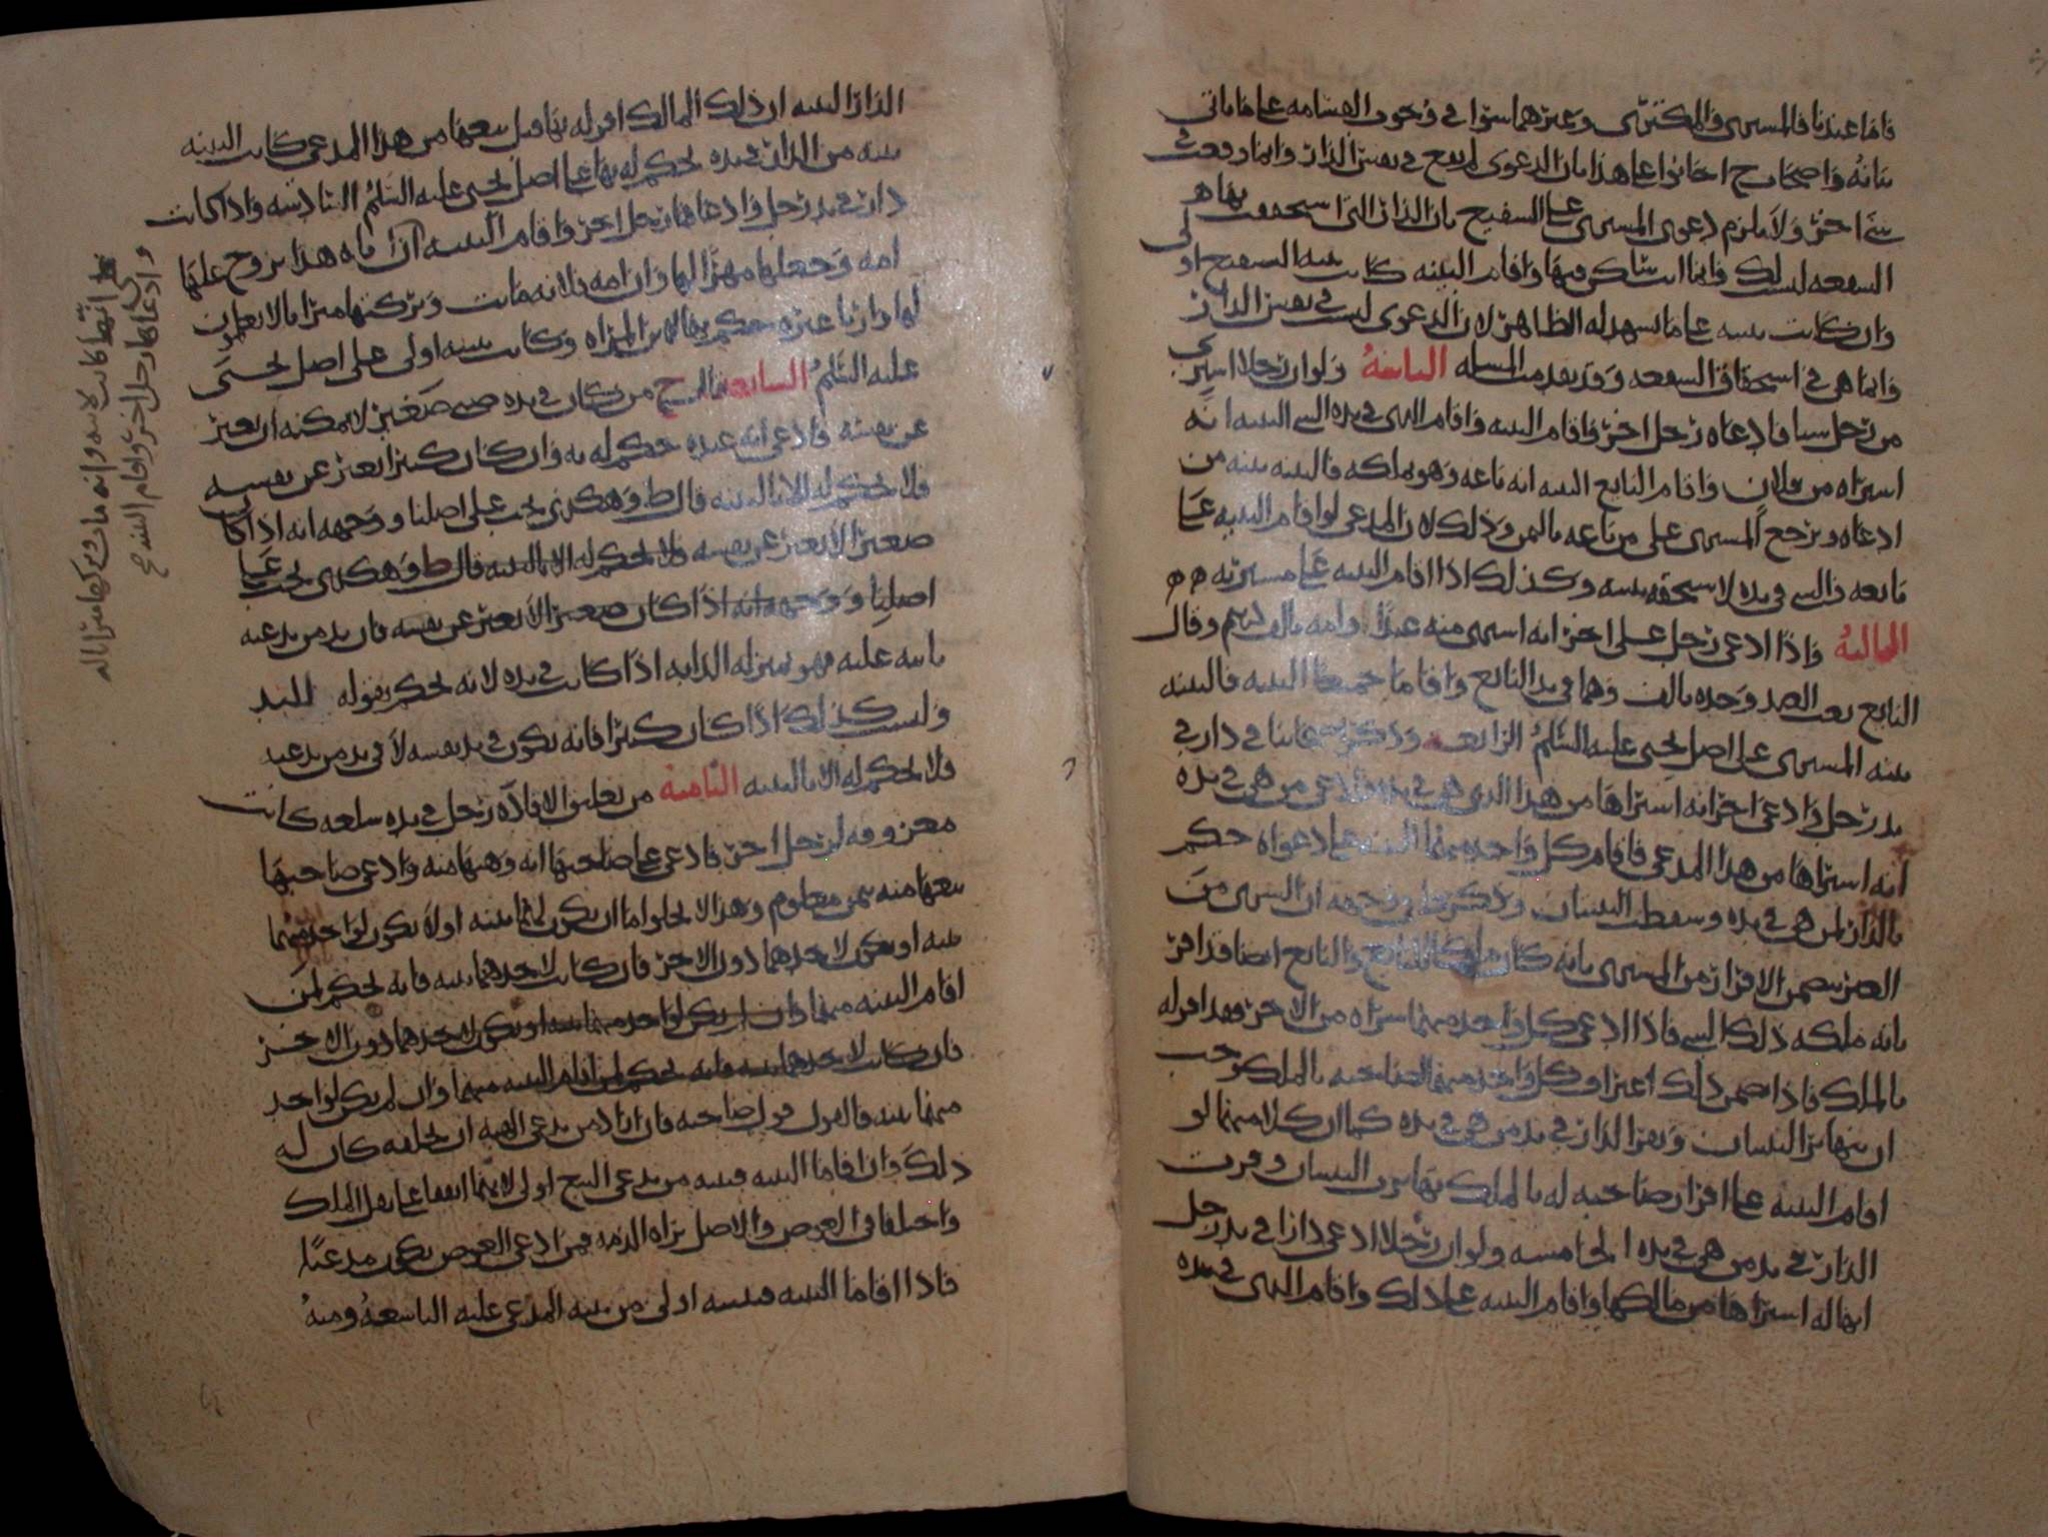 فاما عندنا فالمشتري والمكتري وغيرهما سوا في وجوب القسامه على ما ياتي
بيانه واصحاب ح اجابوا على هذا بان الدعوى لم يقع في نفس الدار وانما وقعت في
شي اخر ولا يلزم دعوى المشتري على الشفيع بان الدار التي استحققت بها
الشفعه ليست لك وانما انت ساكن فيها واقام البينه كانت بينه الشفيع اولى
وان كانت بينته على ما يشهد له الظاهر لان الدعوى ليست في نفس الدار
وانما هي في استحقاق الشفعه وقد تقدمت المسله الثانية ولو ان رجلا اشترى
من رجل شيا فادعاه رجل اخر واقام البينه واقام الذي في يده الشي البينه انه
اشتراه من فلان واقام البايع البينه انه باعه وهو ملكه فالبينه بينه من
ادعاه ويرجع المشتري على من باعه بالثمن وذلك لان المدعي لو اقام البينه على
بايعه والشي في يده لاستحقه ببينته وكذلك اذا اقام البينه على مشتريه
الثالثة واذا ادعى رجل على اخر انه اشترى منه عبدا وامه بالف درهم وقال
البايع بعت العبد وحده بالف وهما في يد البايع واقاما جميعا البينه فالبينه
بينه المشتري على اصل يحيى عليه السلم الرابعه وذكر اصحابنا في دار في
يد رجل وادعى اخر انه اشتراها من هذا الذي هي في يده وادعى من هي في يده
انه اشتراها من هذا المدعي فاقام كل واحد منهما البينه على دعواه حكم
بالدار لمن هي في يده وسقطت البينتان ووجهه ان الشرى من
الغير يتضمن الاقرار من المشتري بانه كان ملكا للبايع والبايع ايضا قد اقر
بانه ملكه ذلك الشي فاذا ادعى كل واحد منهما شراه من الاخر فقد اقر له
بالملك فاذا ضمن ذلك اعتراف كل واحد منهما لصاحبه بالملك وجب
ان يتهاتر البينتان ويقر الدار في يد من هي في يده كما ان كلا منهما لو
اقام البينه على اقرار صاحبه له بالملك تهاترت البينتان وقرت
الدار في يد من هي في يده الخامسه ولو ان رجلا ادعى دارا في يد رجل
انها له اشتراها من مالكها واقام البينه على ذلك واقام الذي في يده
الدار البينه ان ذلك المالك اقر له بها قبل بيعها من هذا المدعي كانت البينه
بينه من الدار في يده يحكم له بها على اصل يحيى عليه السلم السادسه واذا كانت
دار في يد رجل وادعاها رجل اخر واقام البينه ان اباه هذا تزوج عليها
امه وجعلها مهرا لها وان امه فلانه ماتت وتركتها ميراثا لا يعلمون
لها وارثا غيره حكم بها لابن المراه وكانت بينته اولى على اصل يحيى
عليه السلم السابعة قال ح من كان في يده صبي صغير لا يمكنه ان يعبر
عن نفسه فادعى انه عبده حكم له به وان كان كبيرا يعبر عن نفسه
فلا يحكم له الا بالبينه قال ط وهكذى يجب على اصلنا ووجهه انه اذا كان
صغيرا لا يعبر عن نفسه فلا يحكم له الا بالبينه قال ط وهكذى يجب على
اصلنا ووجهه انه اذا كان صغيرا لا يعبر عن نفسه فان يد من يدعيه
ثابته عليه فهو بمنزله الدابه اذا كانت في يده لانه يحكم بقوله لليد
وليس كذلك اذا كان كبيرا فانه يكون في يد نفسه لا في يد من يدعيه
فلا يحكم له الا بالبينه الثامنة من تعليق الافاده رجل في يده سلعه كانت
معروفه لرجل اخر فادعى على صاحبها انه وهبها منه وادعى صاحبها
بيعها منه بثمن معلوم وهذا لا يخلوا اما ان يكون لهما بينه اولا يكون لواحد منهما
بينه او يكون لاحدهما دون الاخر فان كانت لاحدهما بينه فانه يحكم لمن
اقام البينه منهما وان لم يكن لواحد منهما بينه او يكون لاحدهما دون الاخر
فان كانت لاحدهما بينه فانه يحكم لمن اقام البينه منهما وان لم يكن لواحد
منهما بينه فالقول قول صاحبه فان اراد من يدعي الهبه ان يحلفه كان له
ذلك وان اقاما البينه فبينه من يدعي البيع اولى لانهما اتفقا على نقل الملك
واختلفا في العوض والاصل براه الذمه فمن ادعى العوض يكون مدعيا
فاذا اقاما البينه فبينته اولى من بينه المدعى عليه التاسعة ومنه
وادعاها رجل اخر واقام البينه
انها كانت لابيه وانه مات وتركها ميراثا له